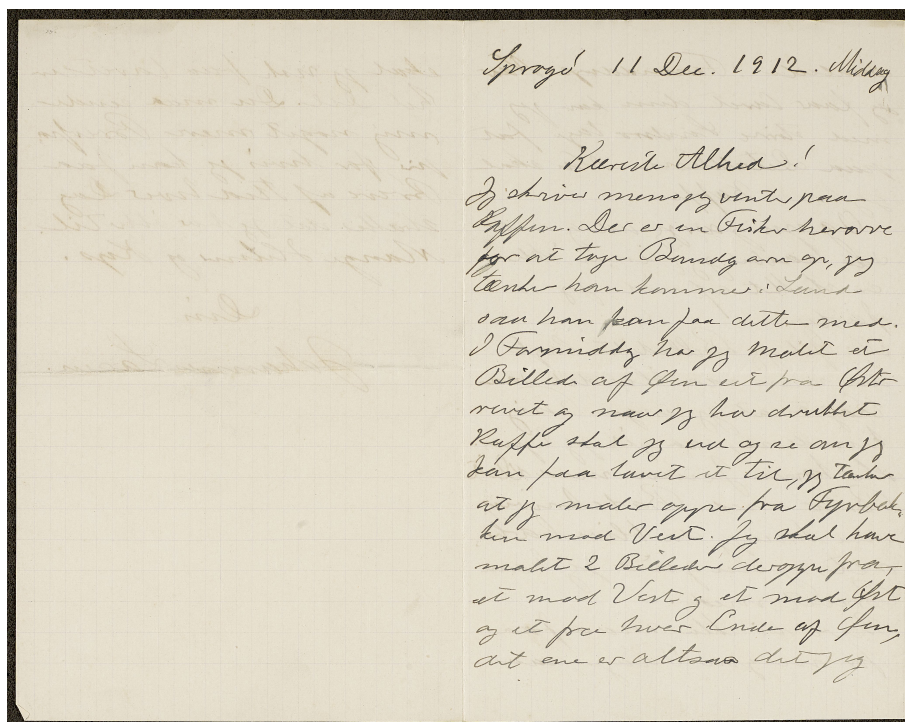 Sprogö 11 Dec. 1912. Middag
Kæreste Alhed!
Jeg skriver mens jeg venter paa
Kaffen. Der er en Fisker herovre
for at tage Bundgarn op, jeg
tænker han kommer i Land
saa han kan faa dette med.
I Formiddg har jeg malet et
Billede af Øen set fra Øster
revet og naar jeg har drukket
Kaffe skal jeg ud og se om jeg
kan faa lavet et til, jeg tænker
at jeg maler oppe fra Fyrbak-
ken mod Vest. Jeg skal have
malet 2 Billeder deroppe fra,
et mod Vest og et mod Øst
og et fra hver Ende af Øen,
det ene er altsaa det jeg